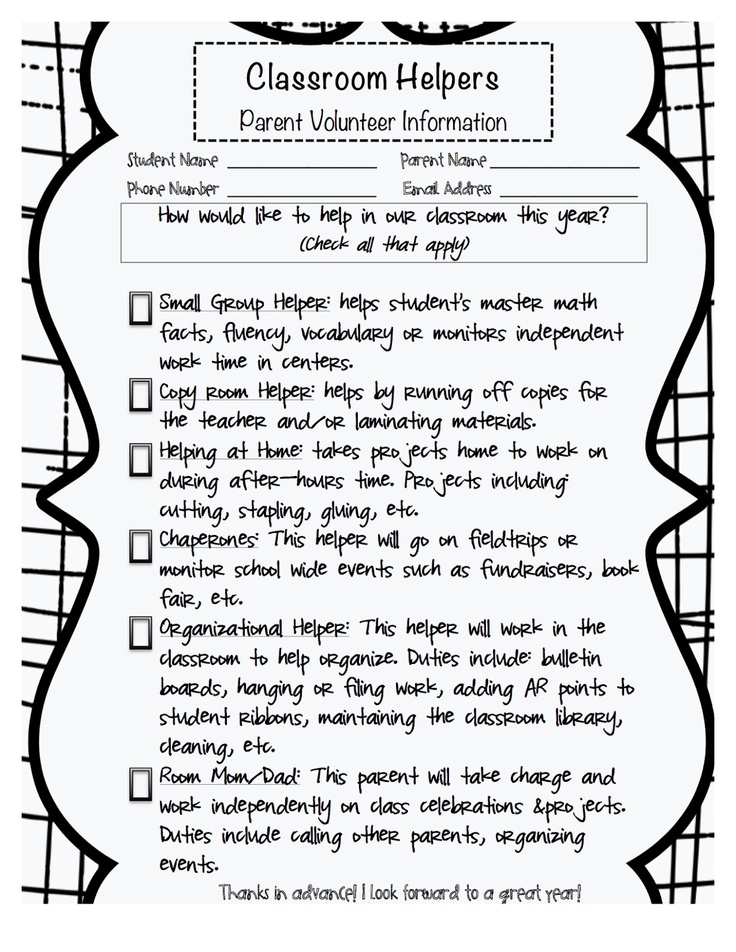 Classroom Helpers
Parent Volunteer Information
Student Name ____________ Parent Name ____________
Phone Number ____________ Email Address ____________
How would like to help in our classroom this year?
(Check all that apply)
Small Group Helper: helps student's master math
facts, fluency, vocabulary or monitors independent
work time in centers.
Copy room Helper: helps by running off copies for
the teacher and/or laminating materials.
Helping at Home: takes projects home to work on
during after-hours time. Projects including:
cutting, stapling, gluing, etc.
Chaperones: This helper will go on fieldtrips or
monitor school wide events such as fundraisers, book
fair, etc.
Organizational Helper: This helper will work in the
classroom to help organize. Duties include: bulletin
boards, hanging or filing work, adding AR points to
student ribbons, maintaining the classroom library,
cleaning, etc.
Room Mom/Dad: This parent will take charge and
work independently on class celebrations &projects.
Duties include calling other parents, organizing
events.
Thanks in advance! I look forward to a great year!